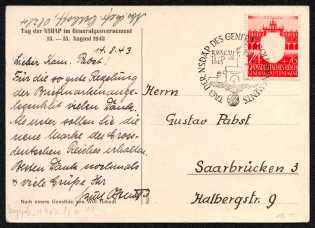 Tag der NSDAP im Generalgouvernement
13. — 15. August 1943
14.8.43
Lieber Kam. Pabst!
Für die so gute Regelung
der Briefmarkenange-
legenheit vielen Dank.
Als erster sollen Sie die
neue Marke des Gross-
deutschen Reiches erhalten.
Besten Dank nochmals
& viele Grüße Ihr
Nach einem Gemälde von
TAG DER NSDAP DES GENERALGOUVERNEMENTS
KRAKAU
1943
GROSSDEUTSCHES REICH
GENERALGOUVERNEMENT
Herrn
Gustav Pabst
Saarbrücken 3
Halbergstr. 9